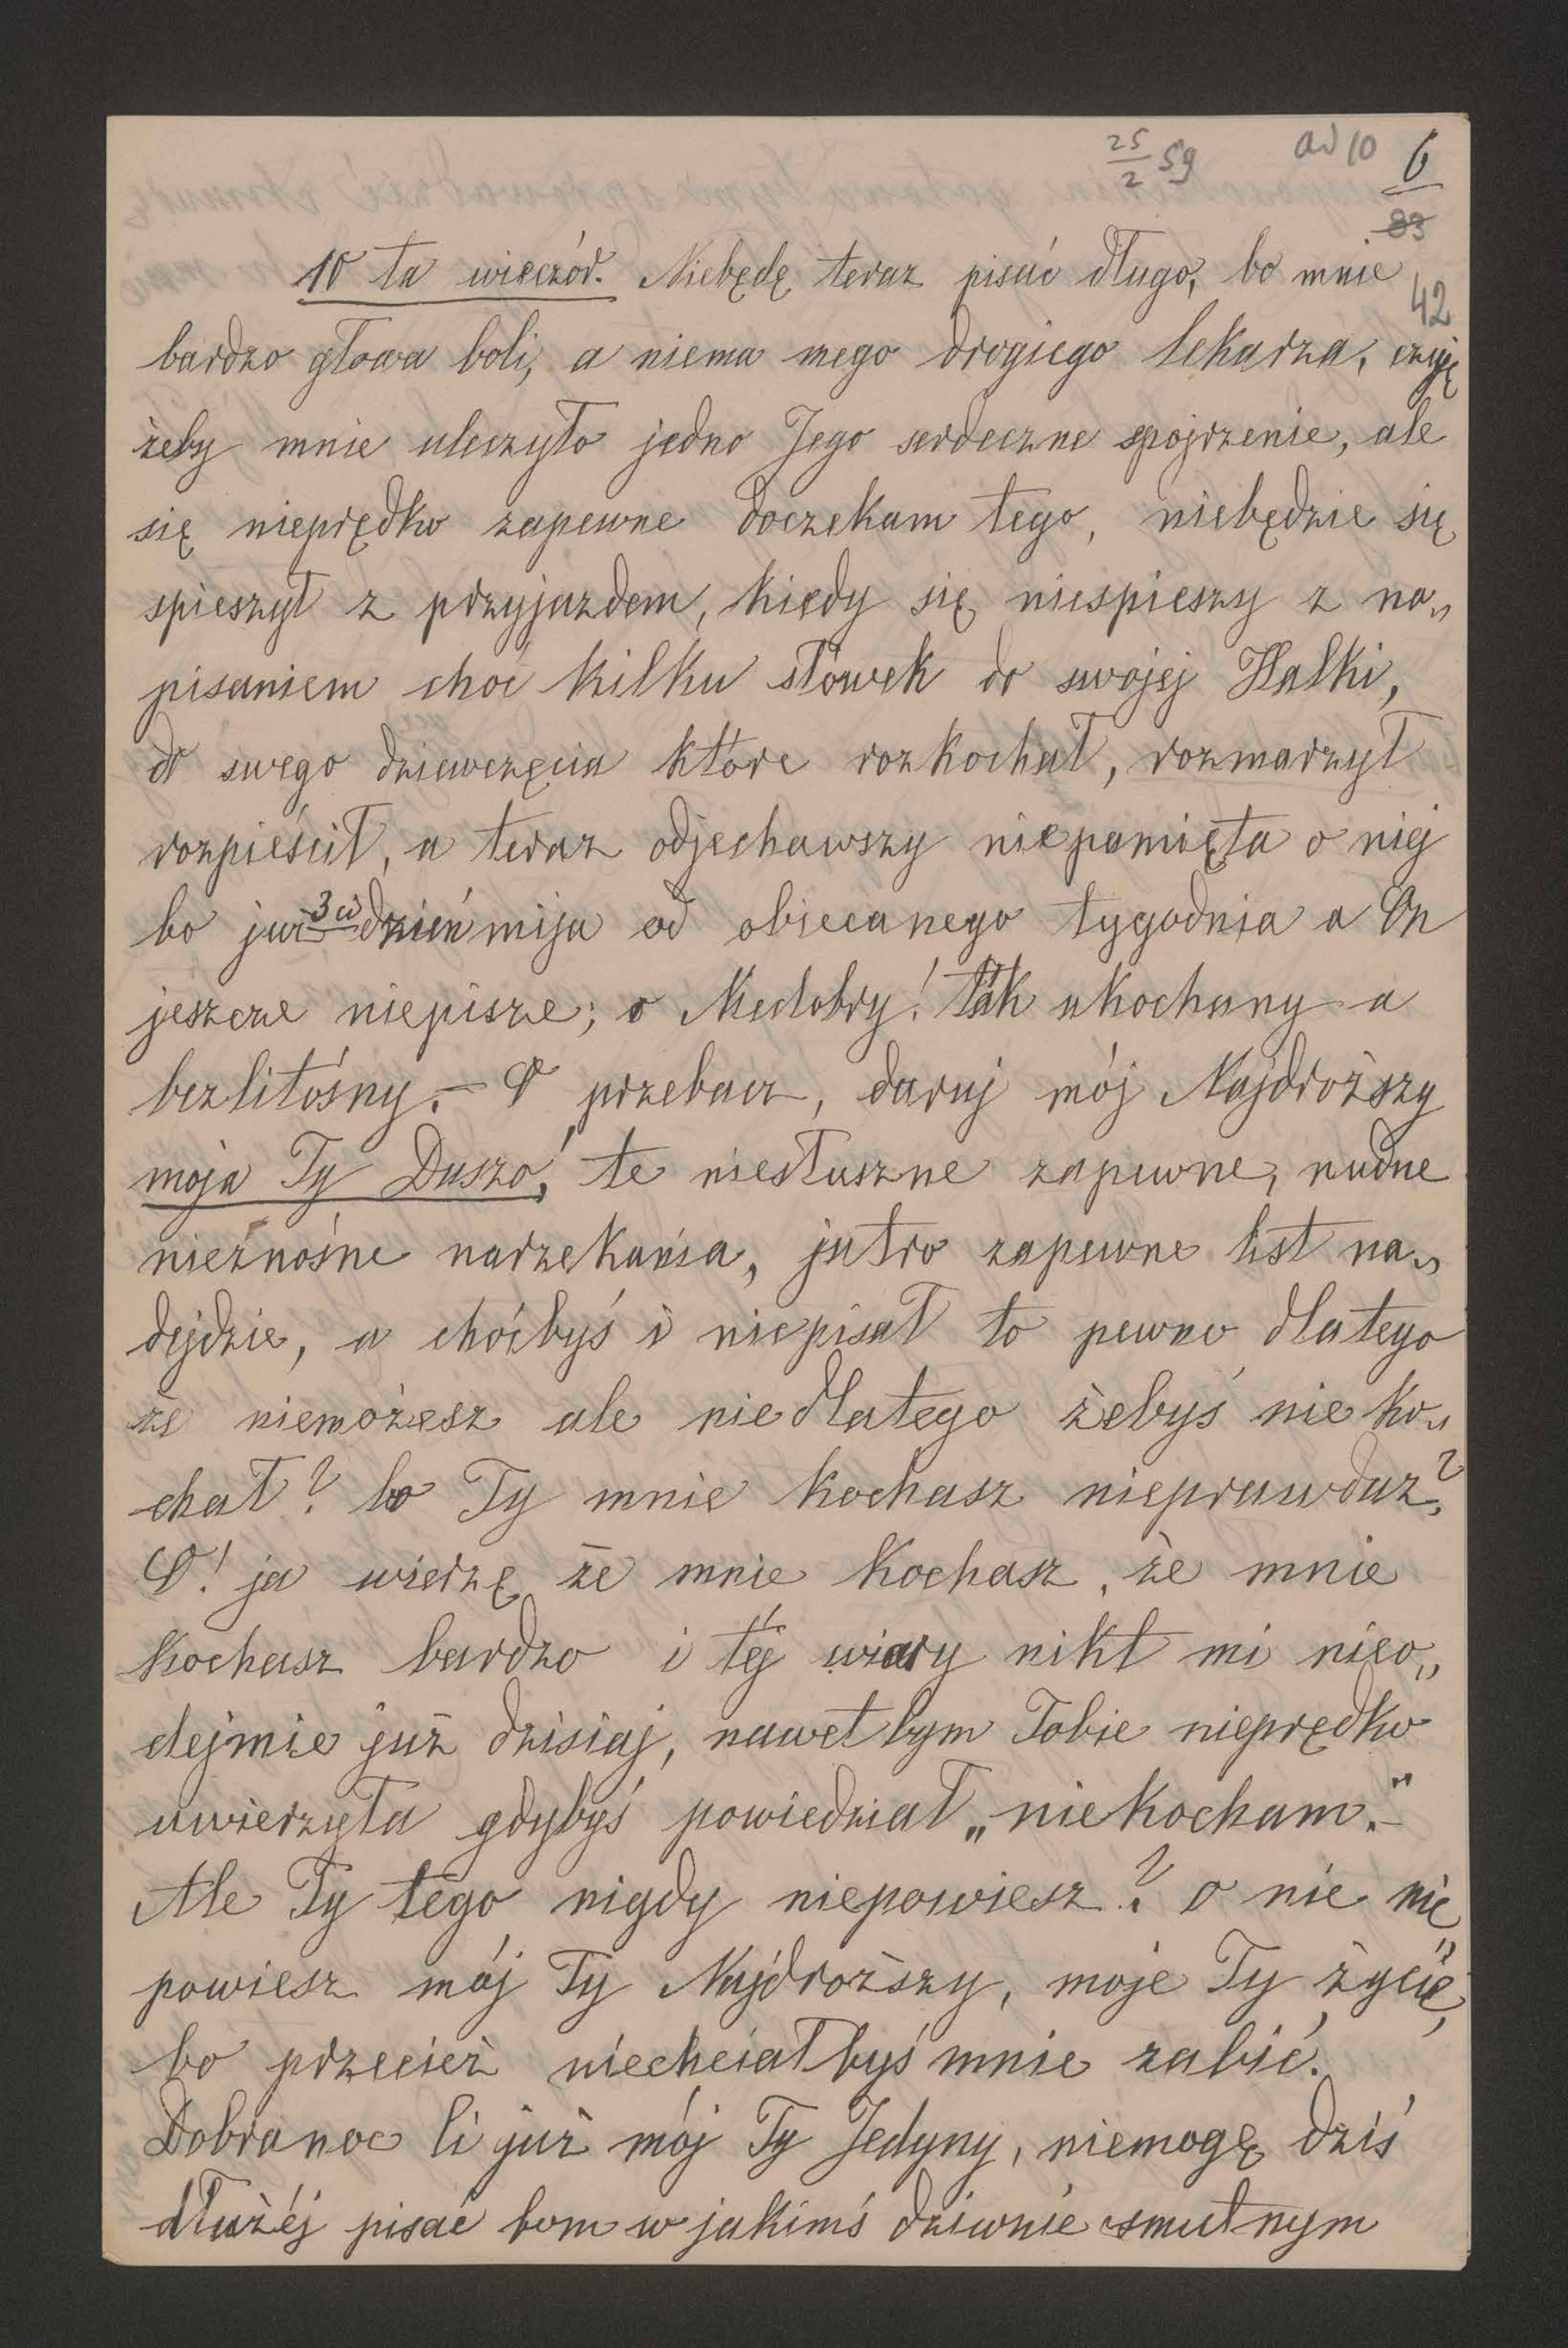 25/2 59 ad 10 6
83
42
10 ta wieczór. Niebędę teraz pisać długo, bo mnie
bardzo głowa boli, a niema mego drogiego lekarza, czuję
żeby mnie uleczyło jedno Jego serdeczne spojrzenie, ale
się nieprędko zapewne doczekam tego, niebędzie się
spieszył z przyjazdem, kiedy się niespieszy z na„
pisaniem choć kilku słówek do swojej Halki,
do swego dziewczęcia które rozkochał, rozmarzył
rozpieścił, a teraz odjechawszy niepamięta o niej
bo już 3ci dzień mija od obiecanego tygodnia a On
jeszcze niepisze; o Niedobry! tak ukochany a
bezlitośny. – O przebacz, daruj mój Najdroższy
moja Ty Duszo! te niesłuszne zapewne, nudne
nieznośne narzekania, jutro zapewne list na„
dejdzie, a choćbyś i niepisał to pewno dlatego
że niemożesz ale nie dlatego żebyś nie ko„
chał? bo Ty mnie kochasz nieprawdaż?
O! ja wierzę że mnie kochasz, że mnie
kochasz bardzo i téj wiary nikt mi nieo„
dejmie już dzisiaj, nawet bym Tobie nieprędko
uwierzyła gdybyś powiedział „niekocham.” –
Ale Ty tego nigdy niepowiesz? o nie nie„
powiesz mój Ty Najdroższy, moje Ty życie,
bo przecież niechciałbyś mnie zabić.
Dobranoc Ci już mój Ty Jedyny, niemogę dziś
dłużéj pisać bom w jakimś dziwnie smutnym